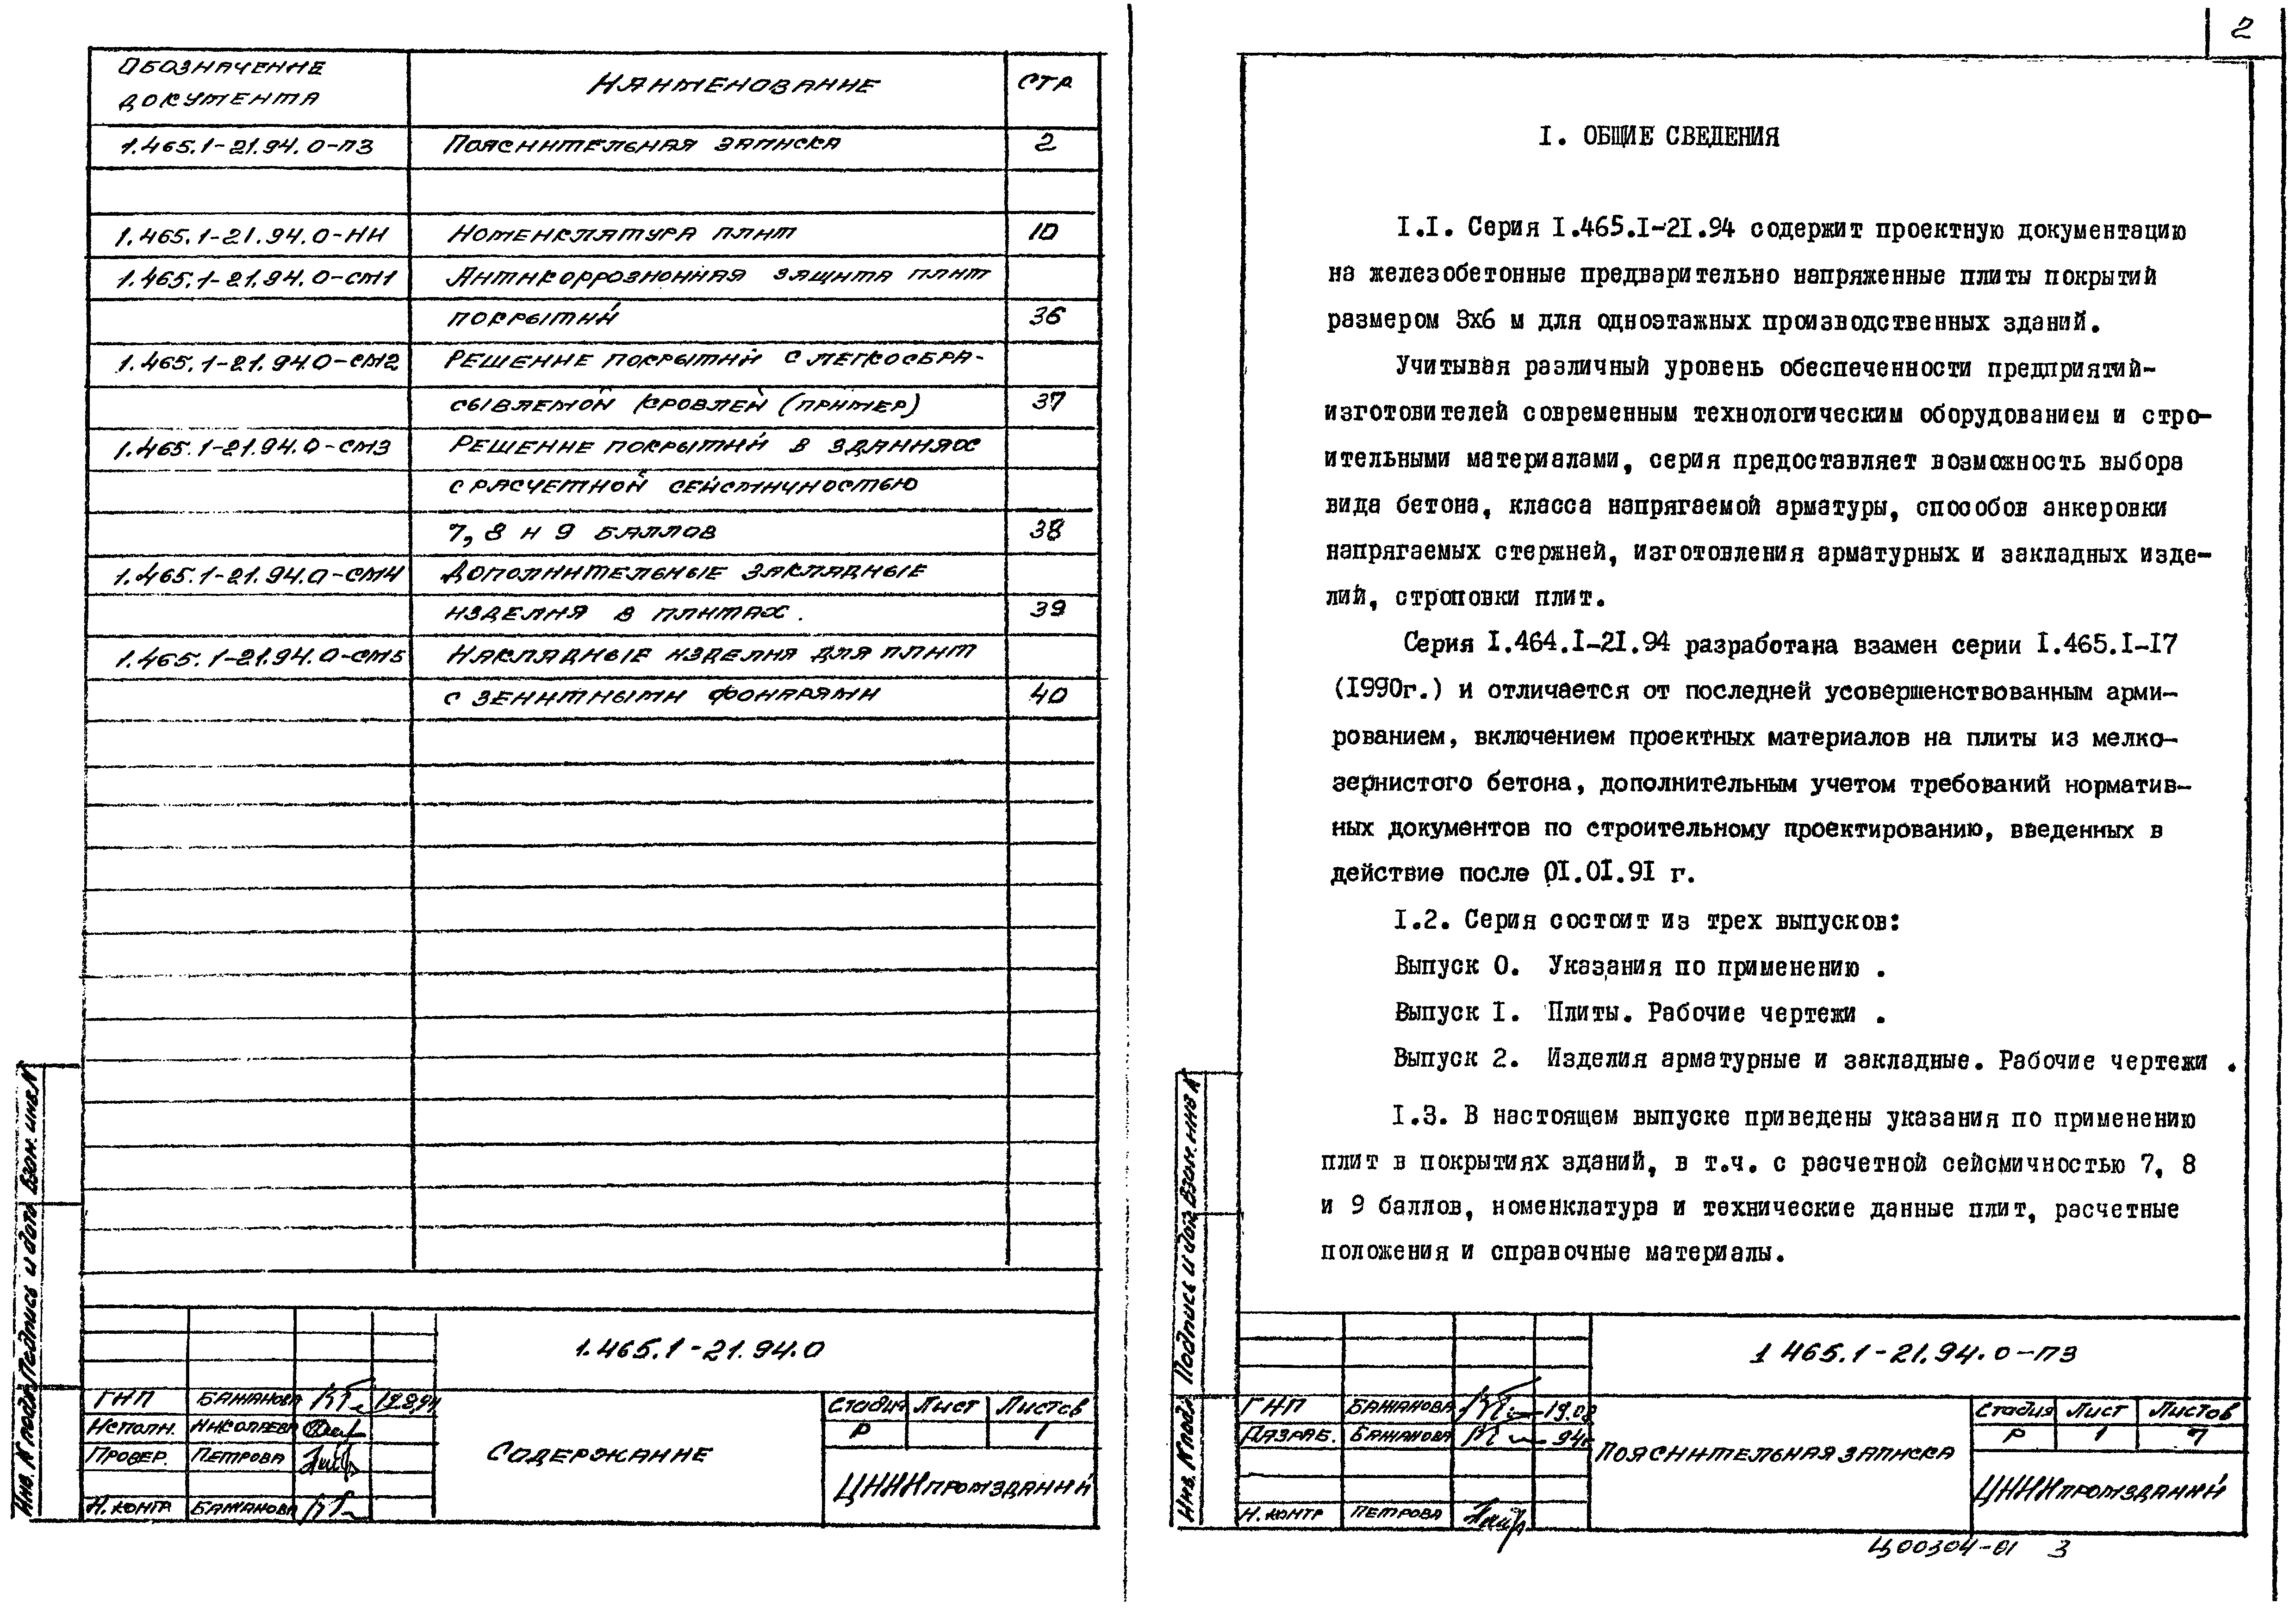 Обозначение документа Наименование Стр
1.465.1-21.94.0-ПЗ Пояснительная записка 2
1.465.1-21.94.0-НИ Номенклатура плит 10
1.465.1-21.94.0-СМ1 Антикоррозионная защита плит
покрытий 36
1.465.1-21.94.0-СМ2 Решение покрытий с легкосбра-
сываемой кровлей (пример) 37
1.465.1-21.94.0-СМ3 Решение покрытий в зданиях
с расчетной сейсмичностью
7, 8 и 9 баллов 38
1.465.1-21.94.0-СМ4 Дополнительные закладные
изделия в плитах. 39
1.465.1-21.94.0-СМ5 Накладные изделия для плит
с зенитными фонарями 40
Инв. N подл. Подпись и дата Взам. инв. N
1.465.1-21.94.0
ГИП Бажанова 19.8.94
Исполн. Николаева
Провер. Петрова
Н. контр Бажанова
Содержание
Стадия Лист Листов
Р 1
ЦНИИпромзданий
2
I. ОБЩИЕ СВЕДЕНИЯ
I.I. Серия I.465.I-2I.94 содержит проектную документацию
на железобетонные предварительно напряженные плиты покрытий
размером 3х6 м для одноэтажных производственных зданий.
Учитывая различный уровень обеспеченности предприятий-
изготовителей современным технологическим оборудованием и стро-
ительными материалами, серия предоставляет возможность выбора
вида бетона, класса напрягаемой арматуры, способов анкеровки
напрягаемых стержней, изготовления арматурных и закладных изде-
лий, строповки плит.
Серия I.464.I-2I.94 разработана взамен серии I.465.I-I7
(I990г.) и отличается от последней усовершенствованным арми-
рованием, включением проектных материалов на плиты из мелко-
зернистого бетона, дополнительным учетом требований норматив-
ных документов по строительному проектированию, введенных в
действие после 0I.0I.9I г.
I.2. Серия состоит из трех выпусков:
Выпуск 0. Указания по применению .
Выпуск I. Плиты. Рабочие чертежи .
Выпуск 2. Изделия арматурные и закладные. Рабочие чертежи .
I.3. В настоящем выпуске приведены указания по применению
плит в покрытиях зданий, в т.ч. с расчетной сейсмичностью 7, 8
и 9 баллов, номенклатура и технические данные плит, расчетные
положения и справочные материалы.
Инв. N подл Подпись и дата Взам. инв N
1 465.1-21.94.0-ПЗ
ГИП Бажанова 19.08
Разраб. Бажанова 94г
Н. контр Петрова
Пояснительная записка
Стадия Лист Листов
Р 1 7
ЦНИИпромзданий
Ц00304-01 3